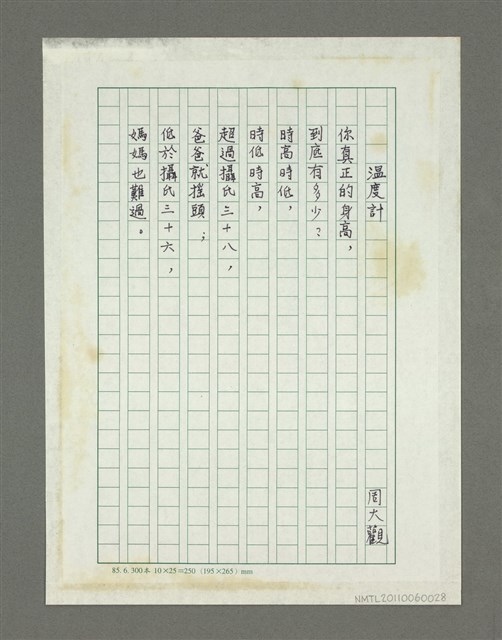 溫度計
周大觀
你真正的身高，
到底有多少？
時高時低，
時低時高，
超過攝氏三十八，
爸爸就搖頭；
低於攝氏三十六，
媽媽也難過。
85. 6. 300本 10×25=250 (195×265) mm
NMTL20110060028